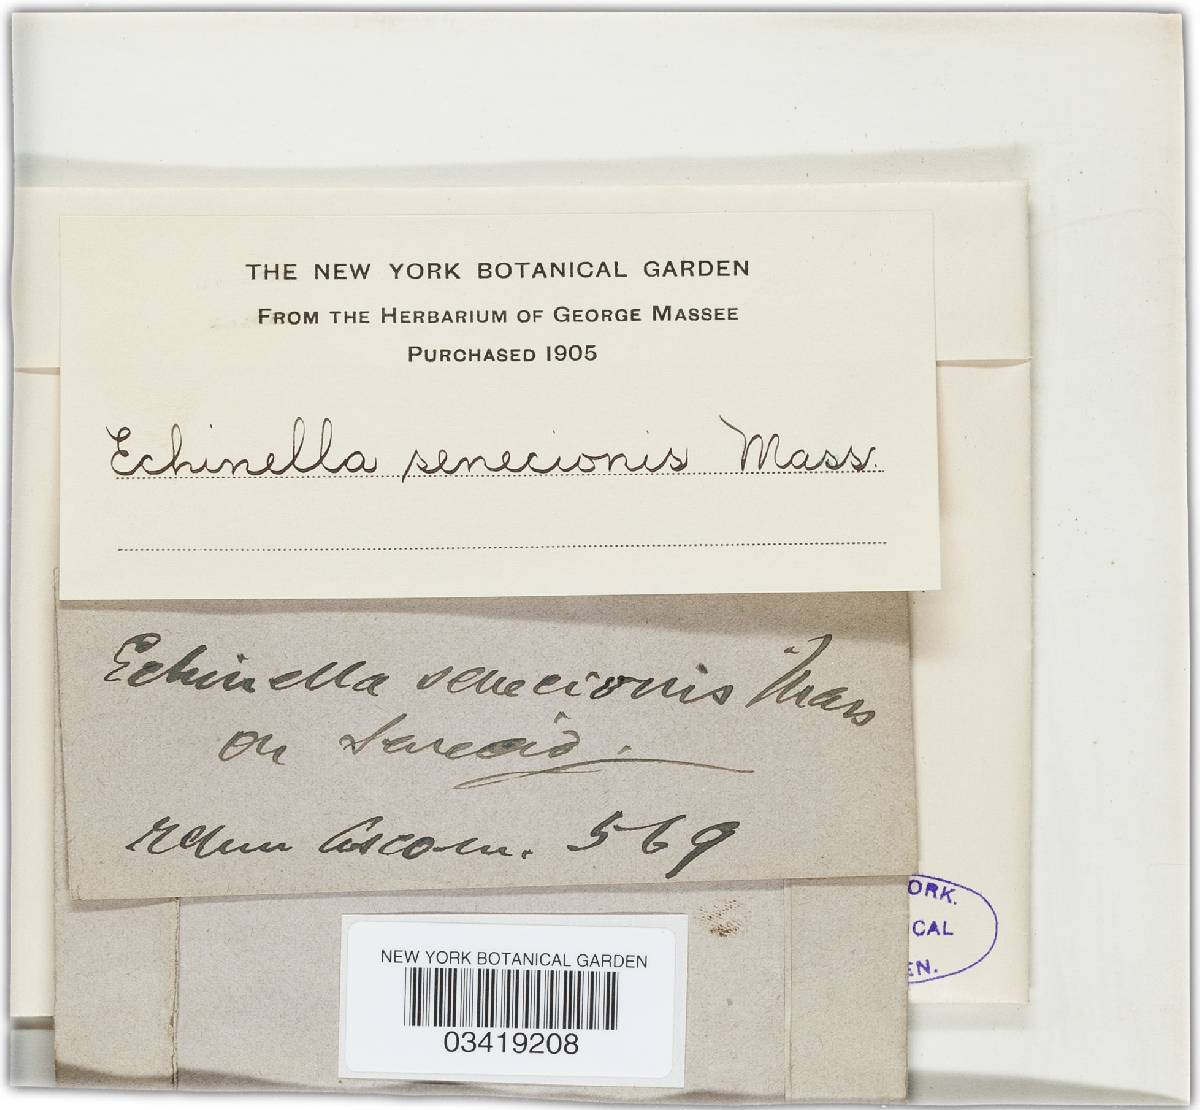 THE NEW YORK BOTANICAL GARDEN
FROM THE HERBARIUM OF GEORGE MASSEE
PURCHASED 1905
Echinella senecionis Mass.
Echinella senecionis Mass
on Senecio.
Rehm Ascom. 569
ORK.
CAL
EN.
NEW YORK BOTANICAL GARDEN
03419208